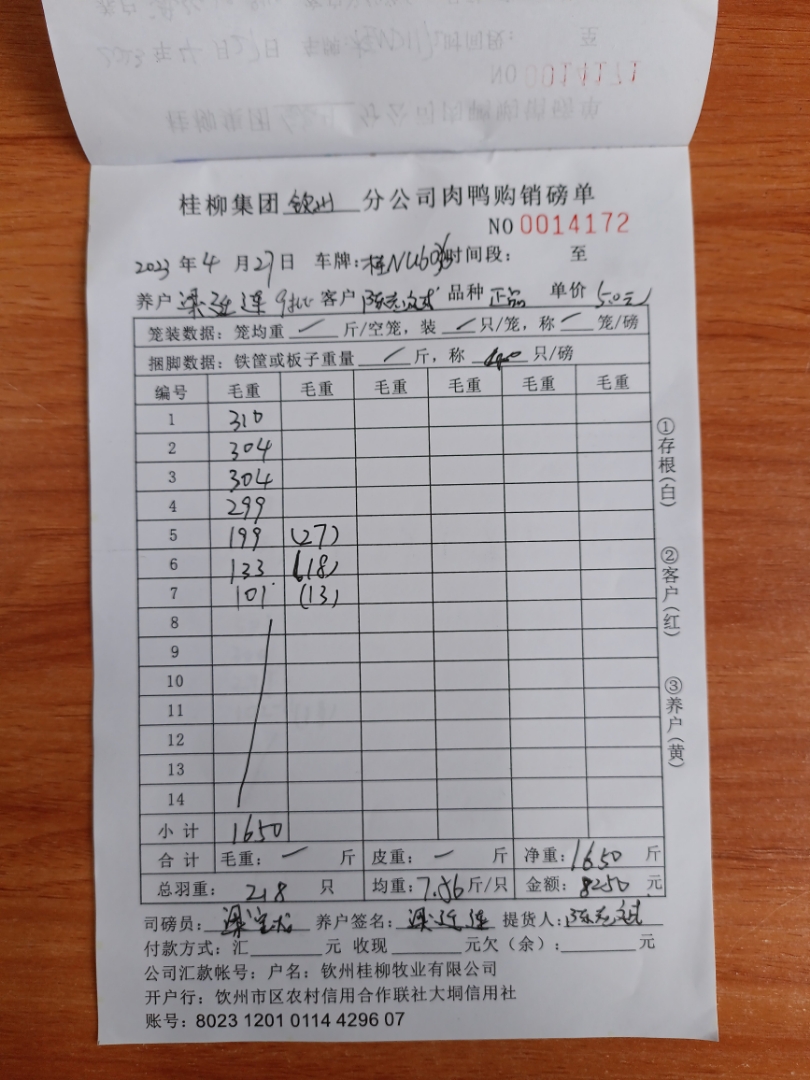 桂柳集团 钦州 分公司肉鸭购销磅单
NO 0014172
2023 年 4 月 27 日 车牌: 时间段: 至
养户 梁连连 客户 品种 正品 单价 5.0元
笼装数据: 笼均重 斤/空笼, 装 只/笼, 称 笼/磅
捆脚数据: 铁筐或板子重量 斤, 称 只/磅
编号 毛重 毛重 毛重 毛重 毛重 毛重
1 310
2 304
3 304
4 299
5 199 (27)
6 133 (18)
7 101 (13)
8
9
10
11
12
13
14
小 计 1650
合 计 毛重: 一 斤 皮重: 一 斤 净重: 1650 斤
总羽重: 218 只 均重: 7.56 斤/只 金额: 8250 元
司磅员: 养户签名: 梁连连 提货人:
付款方式: 汇 元 收现 元欠(余): 元
公司汇款帐号: 户名: 钦州桂柳牧业有限公司
开户行: 钦州市区农村信用合作联社大垌信用社
账号: 8023 1201 0114 4296 07
①存根(白)
②客户(红)
③养户(黄)